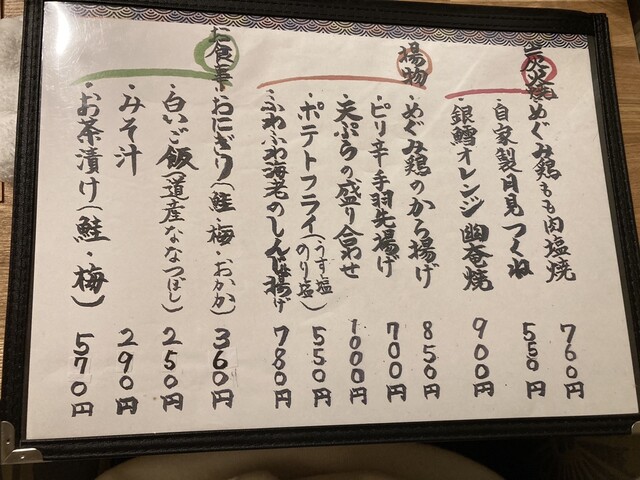 炭焼
・めぐみ鶏もも肉塩焼 760円
・自家製月見つくね 550円
・銀鱈オレンジ幽奄焼 900円
揚物
・めぐみ鶏のから揚げ 850円
・ピリ辛手羽先揚げ 700円
・天ぷらの盛り合わせ 1000円
・ポテトフライ(うす塩 のり塩) 550円
・ふわふわ海老のしんじょ揚げ 780円
お食事
・おにぎり(鮭・梅・おかか) 360円
・白いご飯(道産ななつぼし) 250円
・みそ汁 290円
・お茶漬け(鮭・梅) 570円